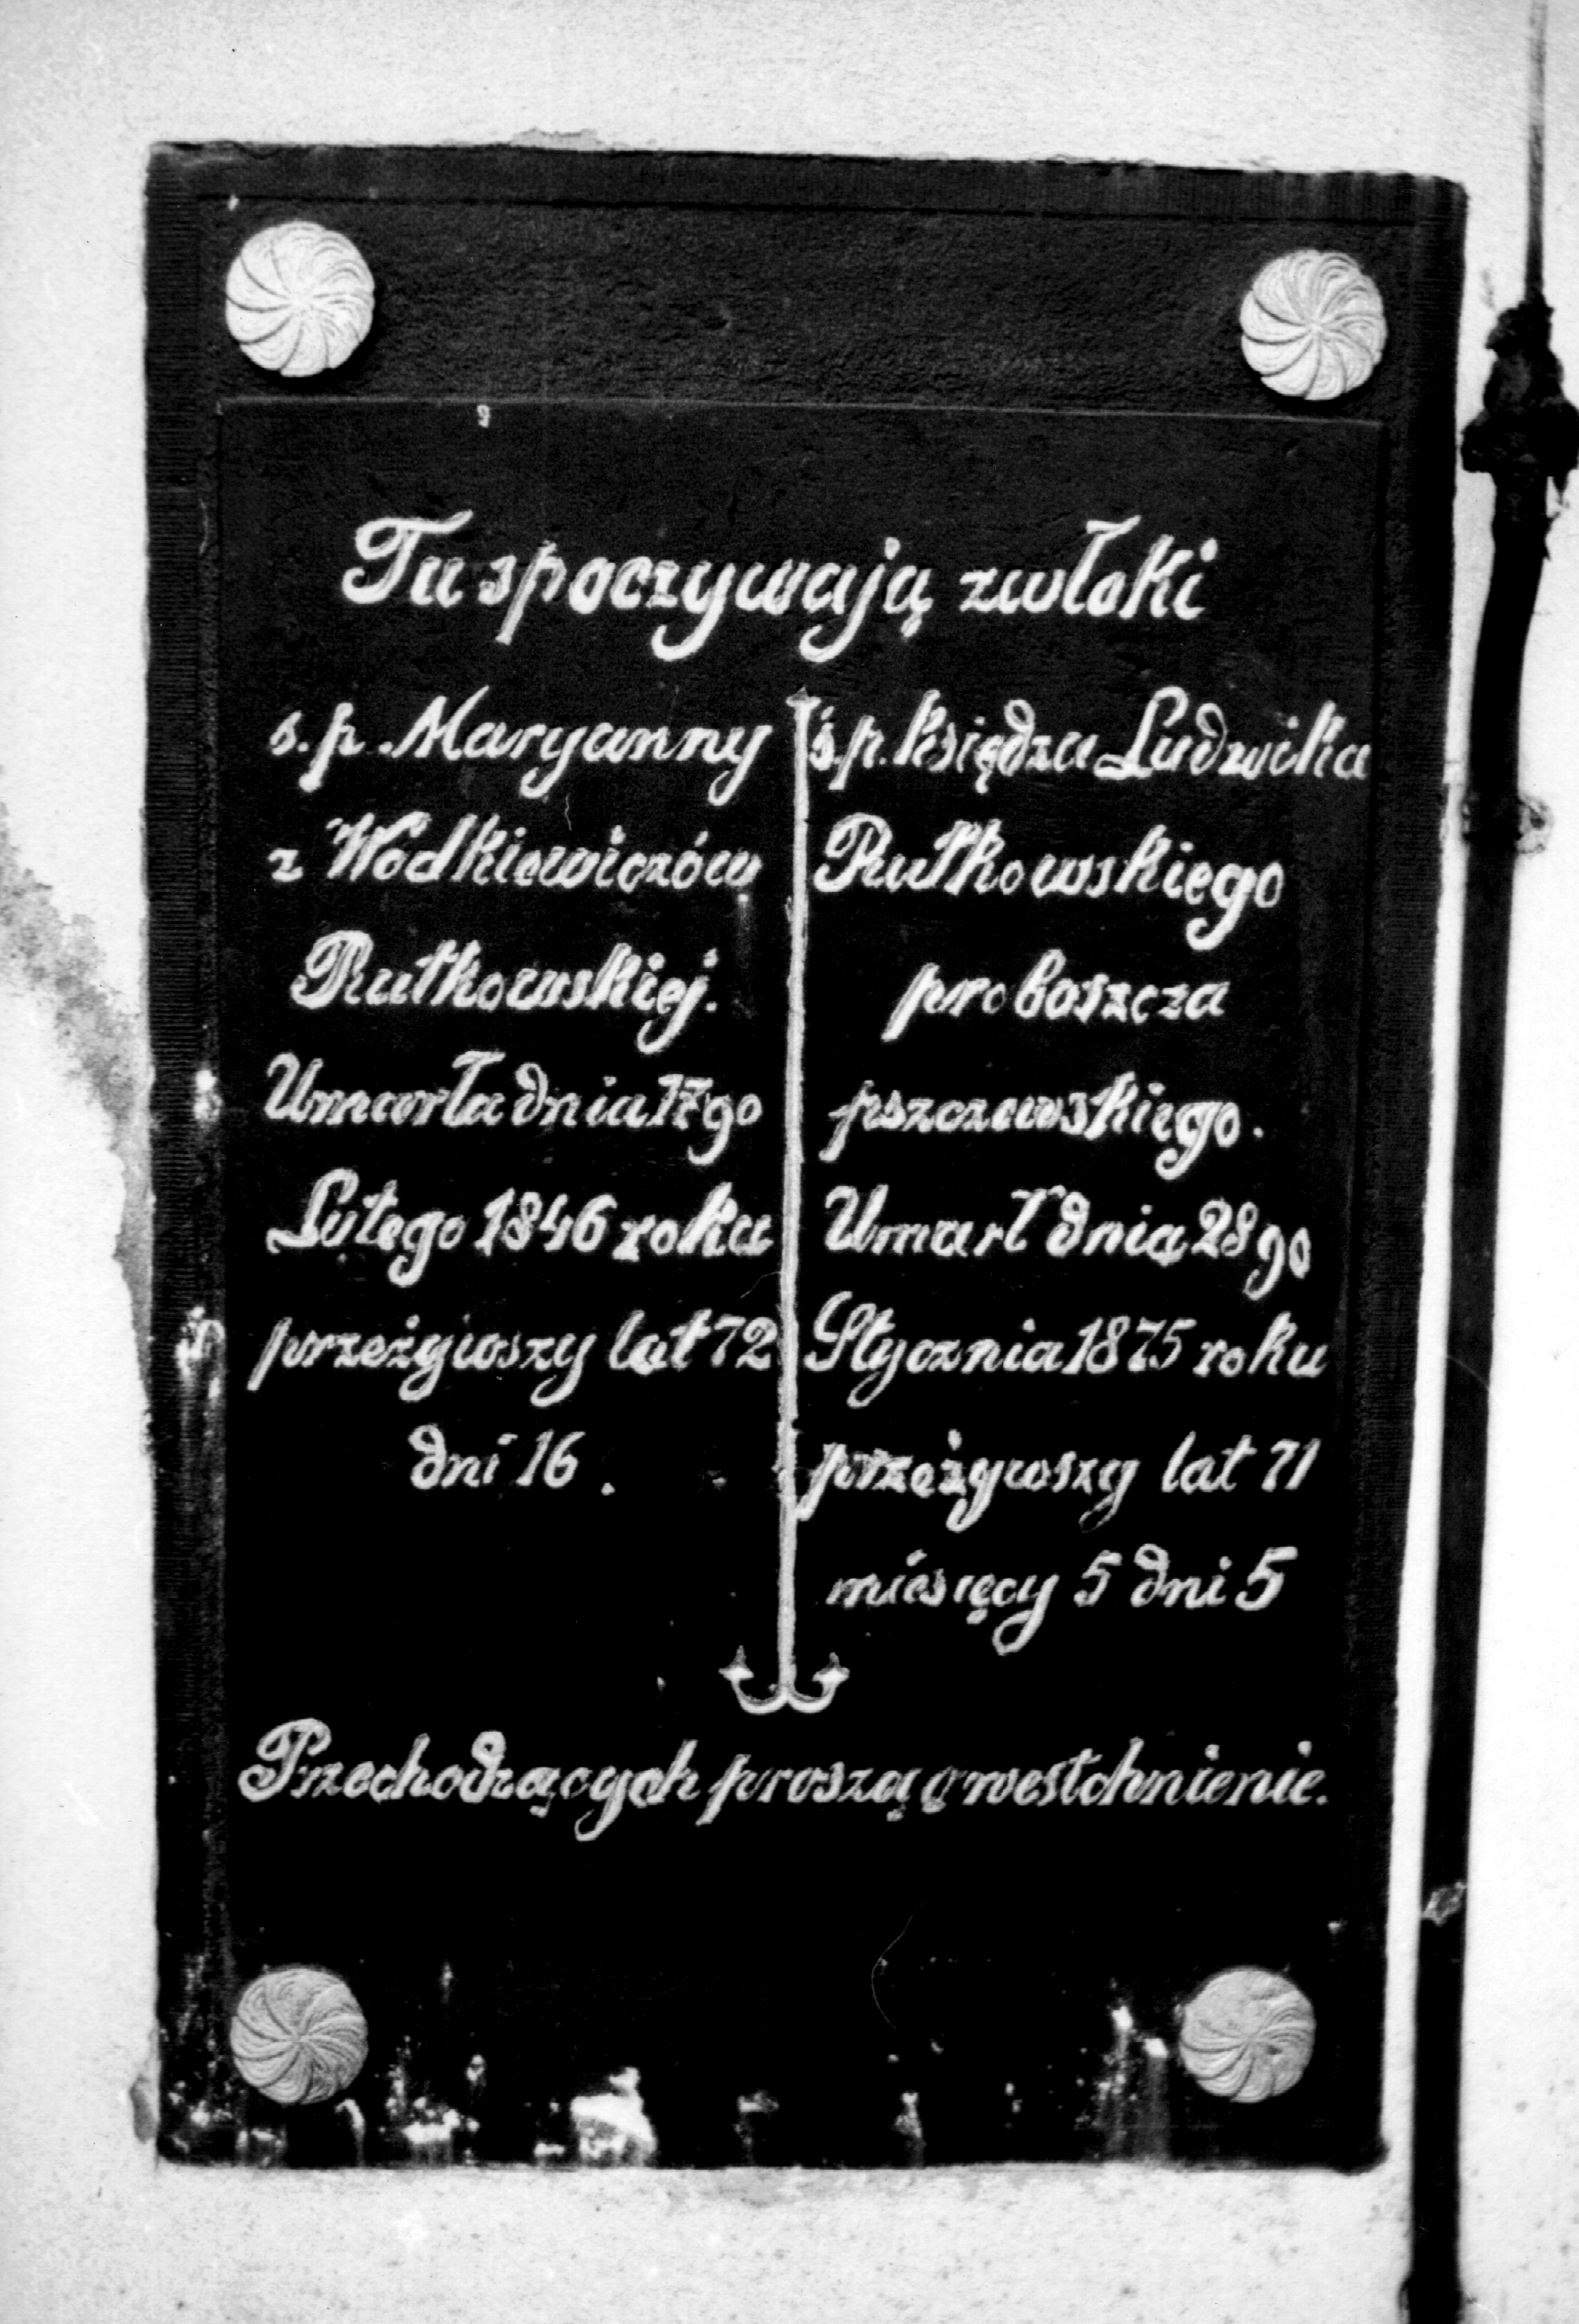 Tu spoczywają zwłoki
s.p. Maryanny
z Wodkiewiczów
Rutkowskiej.
Umarła dnia 17go
Lutego 1846 roku
przeżywszy lat 72
dni 16.
ś.p. Księdza Ludwika
Rutkowskiego
proboszcza
pszczewskiego.
Umarł dnia 28go
Stycznia 1875 roku
przeżywszy lat 71
miesięcy 5 dni 5
Przechodzących proszą o westchnienie.